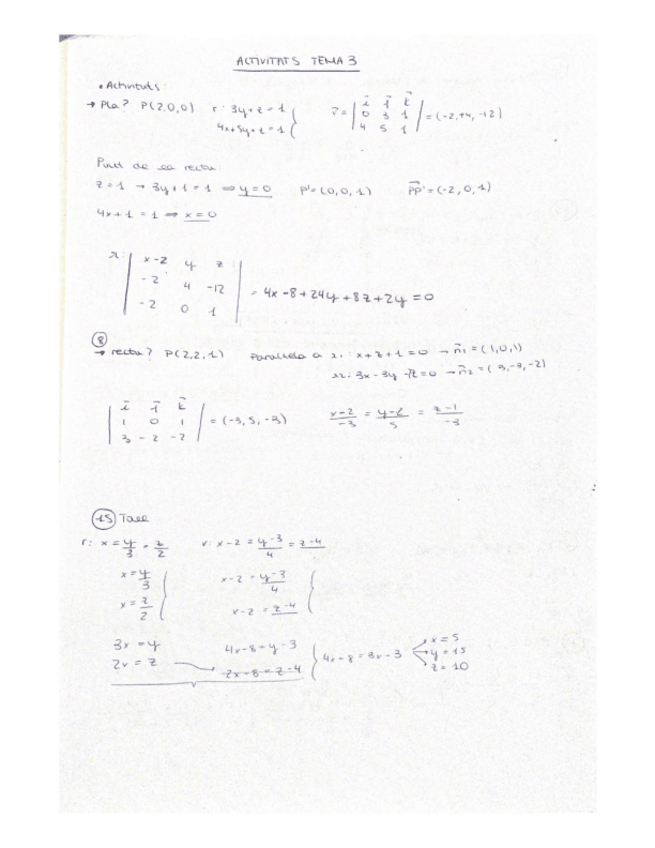 ACTIVITATS TEMA 3
• Activitats:
→ Pla? P(2,0,0) r: 3y+z=1
4x+5y+z=1
i j k
0 3 1
4 5 1
= (-2, +4, -12)
Punt de la recta:
z=1 → 3y+1=1 ⇒ y=0 P'=(0,0,1) PP'=(-2,0,1)
4x+1=1 ⇒ x=0
x-2 y z
-2 4 -12
-2 0 1
= 4x-8+24y+8z+2y=0
8
→ recta? P(2,2,1) x+z+1=0 → n₁=(1,0,1)
→ n₂=
i j k
1 0 1
3 -2 -2
= (-3,5,-3)
x-2/-3 = y-2/5 = z-1/-3
15
r: x = y/3 = z/2 x-2 = y-3/4 = z-4
x = y/3
x = z/2
x-2 = y-3/4
x-2 = z-4
3x=y
2x=z
4x-8=y-3
2x-8=z-4
4x-8=3x-3
x=5
y=15
z=10